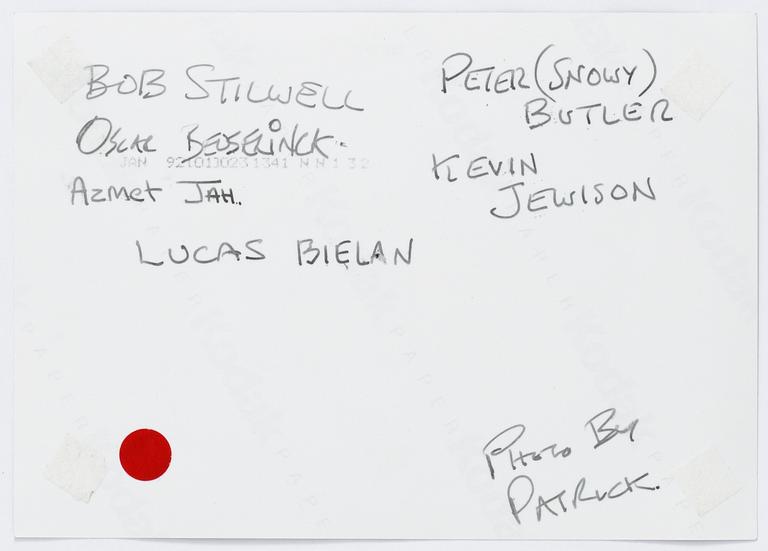 BOB STILWELL
OSCAR BEUSELINCK.
JAN 92
AZMET JAH.
LUCAS BIELAN
PETER (SNOWY)
BUTLER
KEVIN
JEWISON
PHOTO BY
PATRICK.